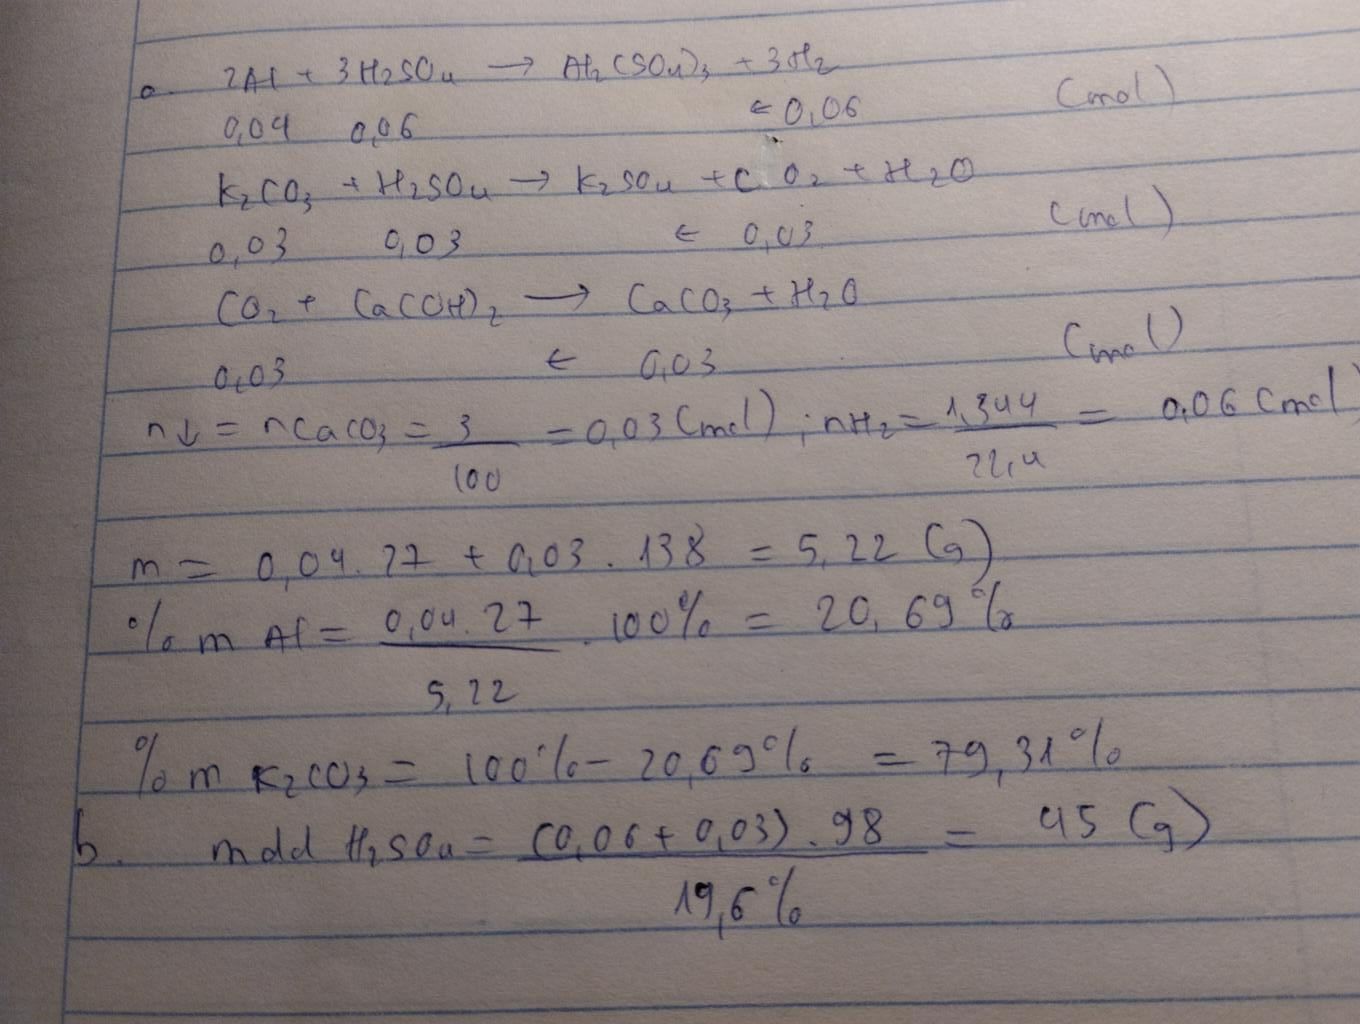 a. 2Al + 3H2SO4 → Al2(SO4)3 + 3H2
0,04 0,06 ← 0,06 (mol)
K2CO3 + H2SO4 → K2SO4 + CO2 + H2O
0,03 0,03 ← 0,03 (mol)
CO2 + Ca(OH)2 → CaCO3 + H2O
0,03 ← 0,03 (mol)
n↓ = nCaCO3 = 3/100 = 0,03 (mol) ; nH2 = 1,344/22,4 = 0,06 (mol)
m = 0,04.27 + 0,03.138 = 5,22 (g)
%mAl = 0,04.27/5,22 .100% = 20,69%
%mK2CO3 = 100% - 20,69% = 79,31%
b. mdd H2SO4 = (0,06 + 0,03).98/19,6% = 45 (g)